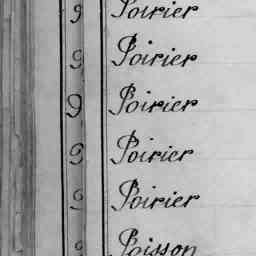 9 Poirier
9 Poirier
9 Poirier
9 Poirier
9 Poirier
9 Poisson